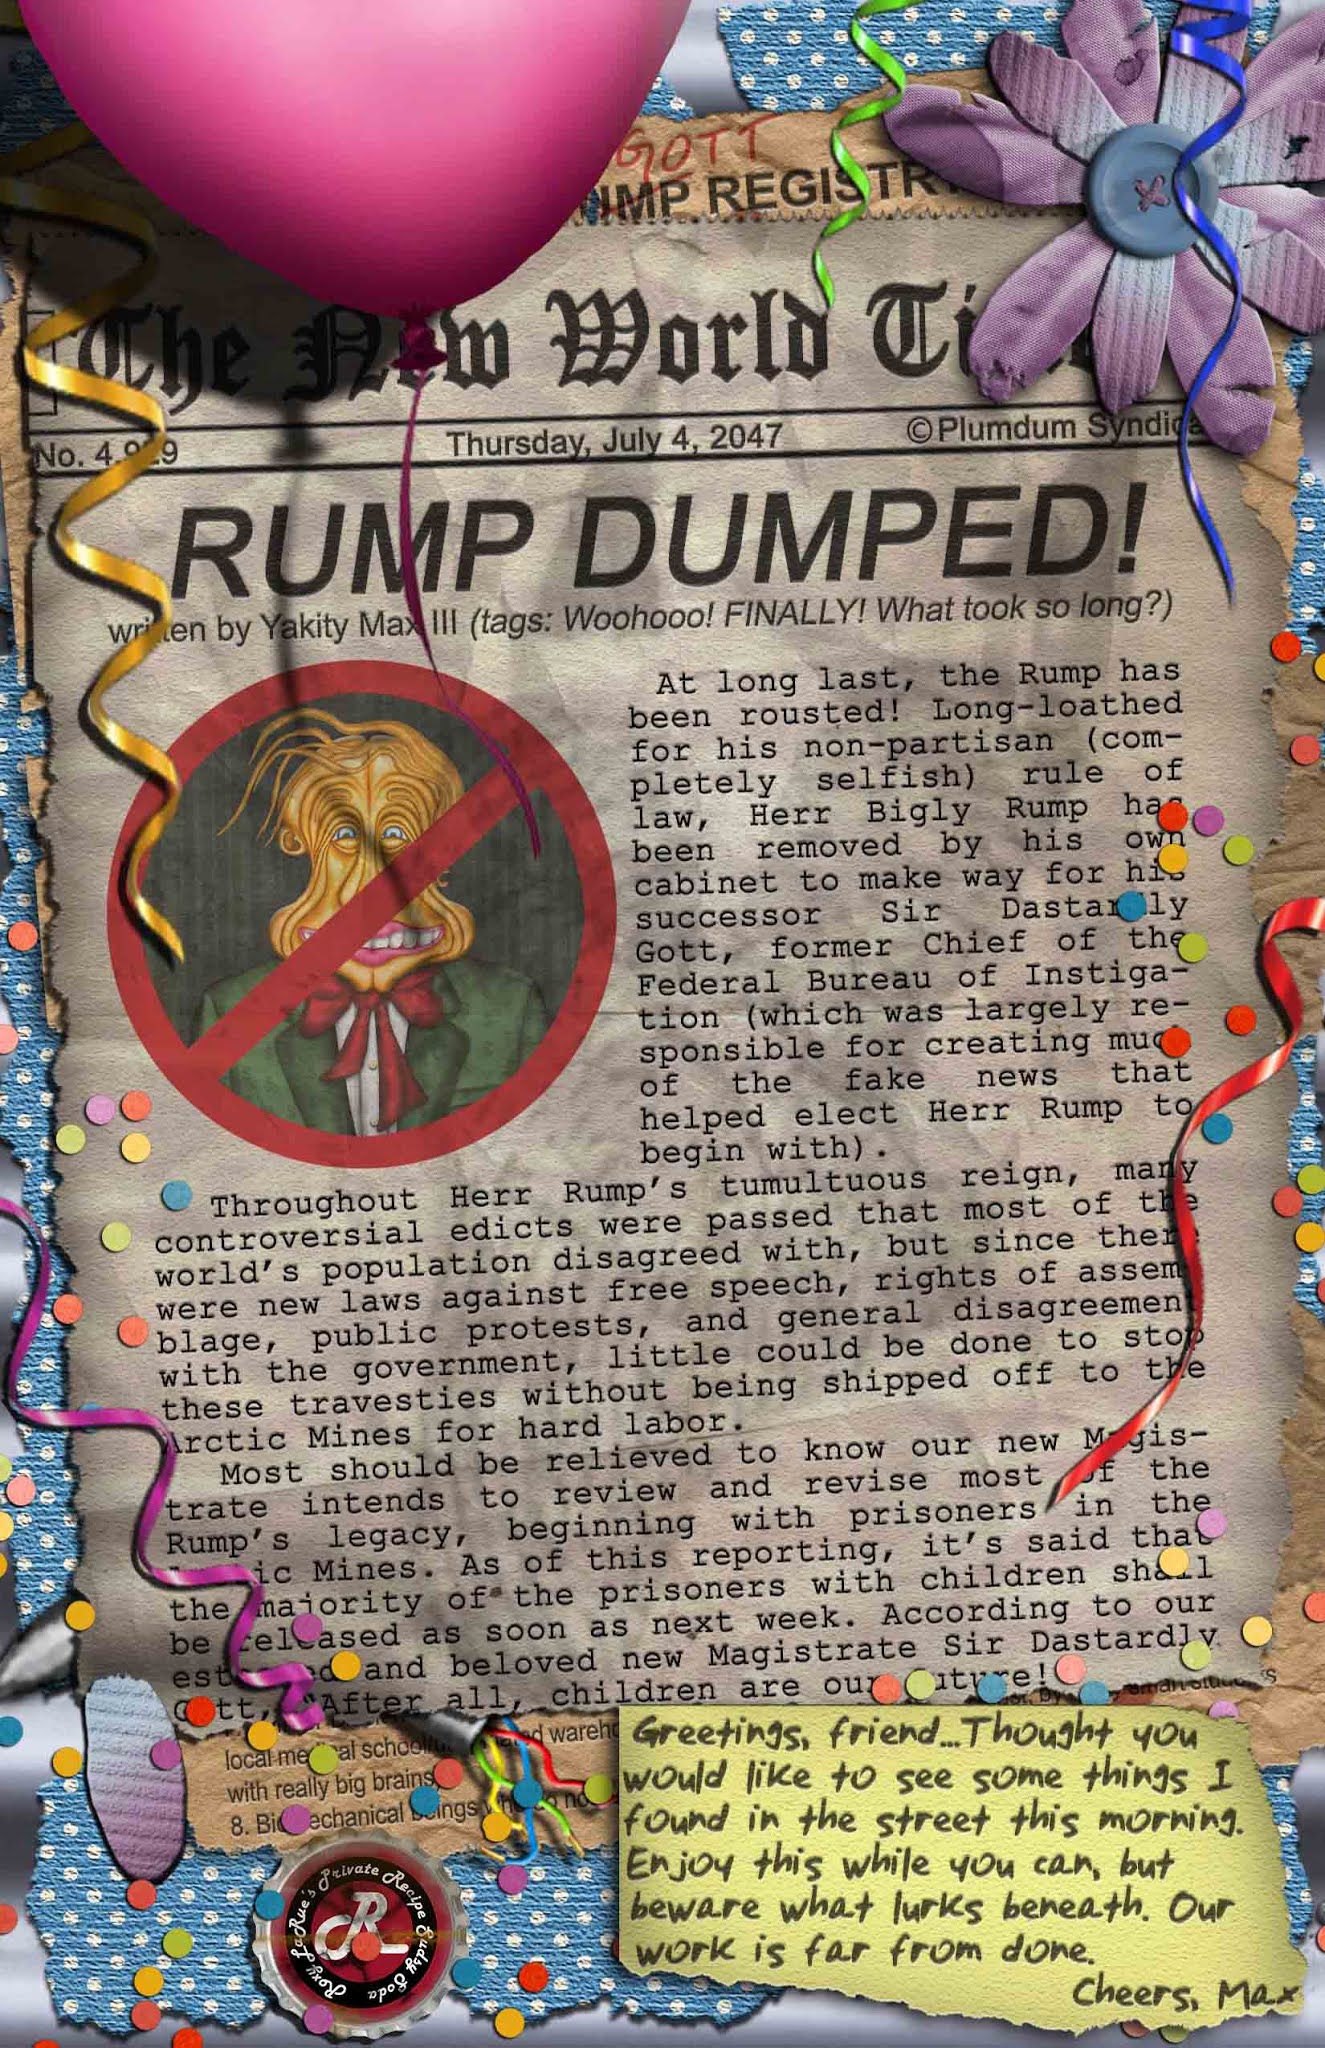 GOTT
UMP REGISTR
The New World Ti
No. 4,929
Thursday, July 4, 2047
©Plumdum Syndica
RUMP DUMPED!
written by Yakity Max III (tags: Woohooo! FINALLY! What took so long?)
At long last, the Rump has
been rousted! Long-loathed
for his non-partisan (com-
pletely selfish) rule of
law, Herr Bigly Rump has
been removed by his own
cabinet to make way for his
successor Sir Dastardly
Gott, former Chief of the
Federal Bureau of Instiga-
tion (which was largely re-
sponsible for creating much
of the fake news that
helped elect Herr Rump to
begin with).
Throughout Herr Rump's tumultuous reign, many
controversial edicts were passed that most of the
world's population disagreed with, but since there
were new laws against free speech, rights of assem
blage, public protests, and general disagreement
with the government, little could be done to stop
these travesties without being shipped off to the
Arctic Mines for hard labor.
Most should be relieved to know our new Magis-
trate intends to review and revise most of the
Rump's legacy, beginning with prisoners in the
Arctic Mines. As of this reporting, it's said that
the majority of the prisoners with children shall
be released as soon as next week. According to our
esteemed and beloved new Magistrate Sir Dastardly
Gott, "After all, children are our future!
local medical school
with really big brains
8. Biomechanical beings who do no
Greetings, friend...Thought you
would like to see some things I
found in the street this morning.
Enjoy this while you can, but
beware what lurks beneath. Our
work is far from done.
Cheers, Max
Roxy LaRue's Private Recipe Sudsy Soda
R